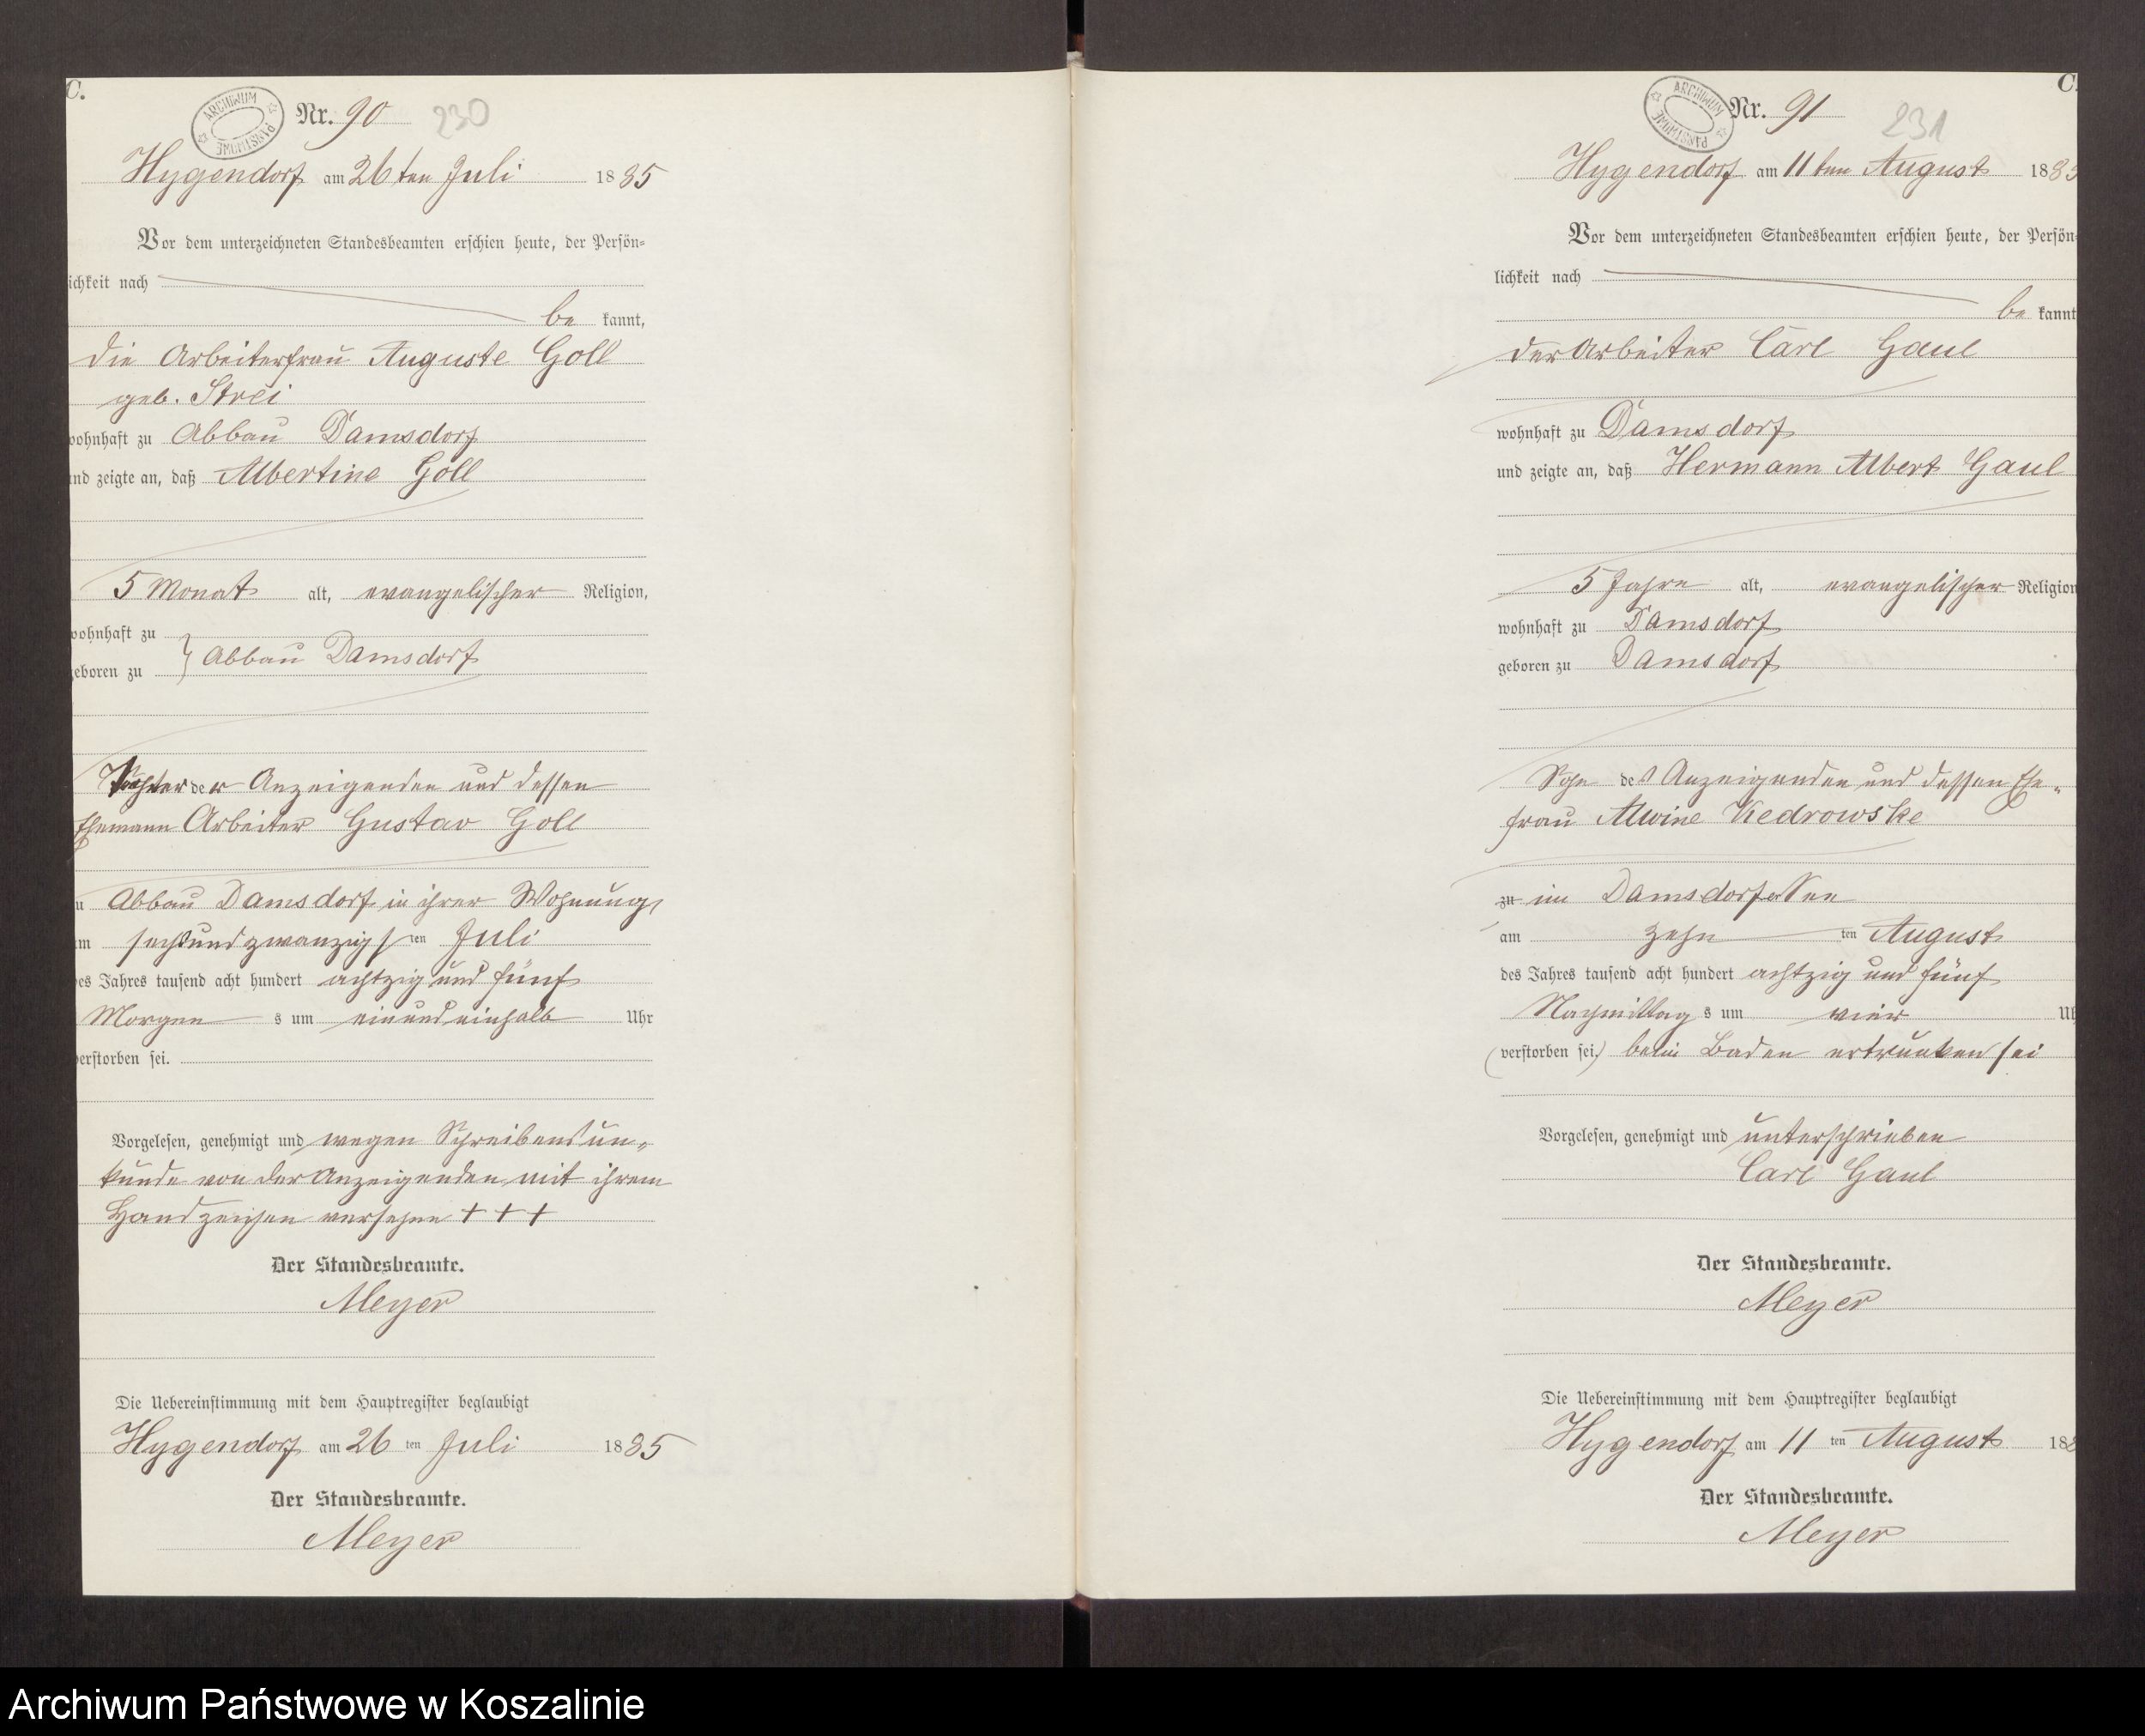 C.
ARCHIWUM PAŃSTWOWE
Nr. 90 230
Hygendorf am 26ten Juli 1885
Vor dem unterzeichneten Standesbeamten erschien heute, der Persön-
ichkeit nach
be kannt,
die Arbeiterfrau Auguste Goll
geb. Strei
wohnhaft zu Abbau Damsdorf
und zeigte an, daß Albertine Goll
5 Monat alt, evangelischer Religion,
wohnhaft zu
geboren zu } Abbau Damsdorf
Tochter der Anzeigenden und dessen
Ehemann Arbeiter Gustav Goll
zu Abbau Damsdorf in ihrer Wohnung,
am sechsundzwanzigsten Juli
des Jahres tausend acht hundert achtzig und fünf
Morgens um einundeinhalb Uhr
verstorben sei.
Vorgelesen, genehmigt und wegen Schreibensun-
kunde von der Anzeigenden mit ihrem
Handzeichen versehen + + +
Der Standesbeamte.
Meyer
Die Uebereinstimmung mit dem Hauptregister beglaubigt
Hygendorf am 26 ten Juli 1885
Der Standesbeamte.
Meyer
C.
ARCHIWUM PAŃSTWOWE
Nr. 91 231
Hygendorf am 11ten August 1885
Vor dem unterzeichneten Standesbeamten erschien heute, der Persön-
lichkeit nach
be kannt
der Arbeiter Carl Gaul
wohnhaft zu Damsdorf
und zeigte an, daß Hermann Albert Gaul
5 Jahre alt, evangelischer Religion
wohnhaft zu Damsdorf
geboren zu Damsdorf
Sohn des Anzeigenden und dessen Ehe-
frau Alwine Kedrowske
zu im Damsdorfer See
am zehn ten August
des Jahres tausend acht hundert achtzig und fünf
Nachmittags um vier Uh
(verstorben sei,) beim Baden ertrunken sei
Vorgelesen, genehmigt und unterschrieben
Carl Gaul
Der Standesbeamte.
Meyer
Die Uebereinstimmung mit dem Hauptregister beglaubigt
Hygendorf am 11 ten August 188
Der Standesbeamte.
Meyer
Archiwum Państwowe w Koszalinie